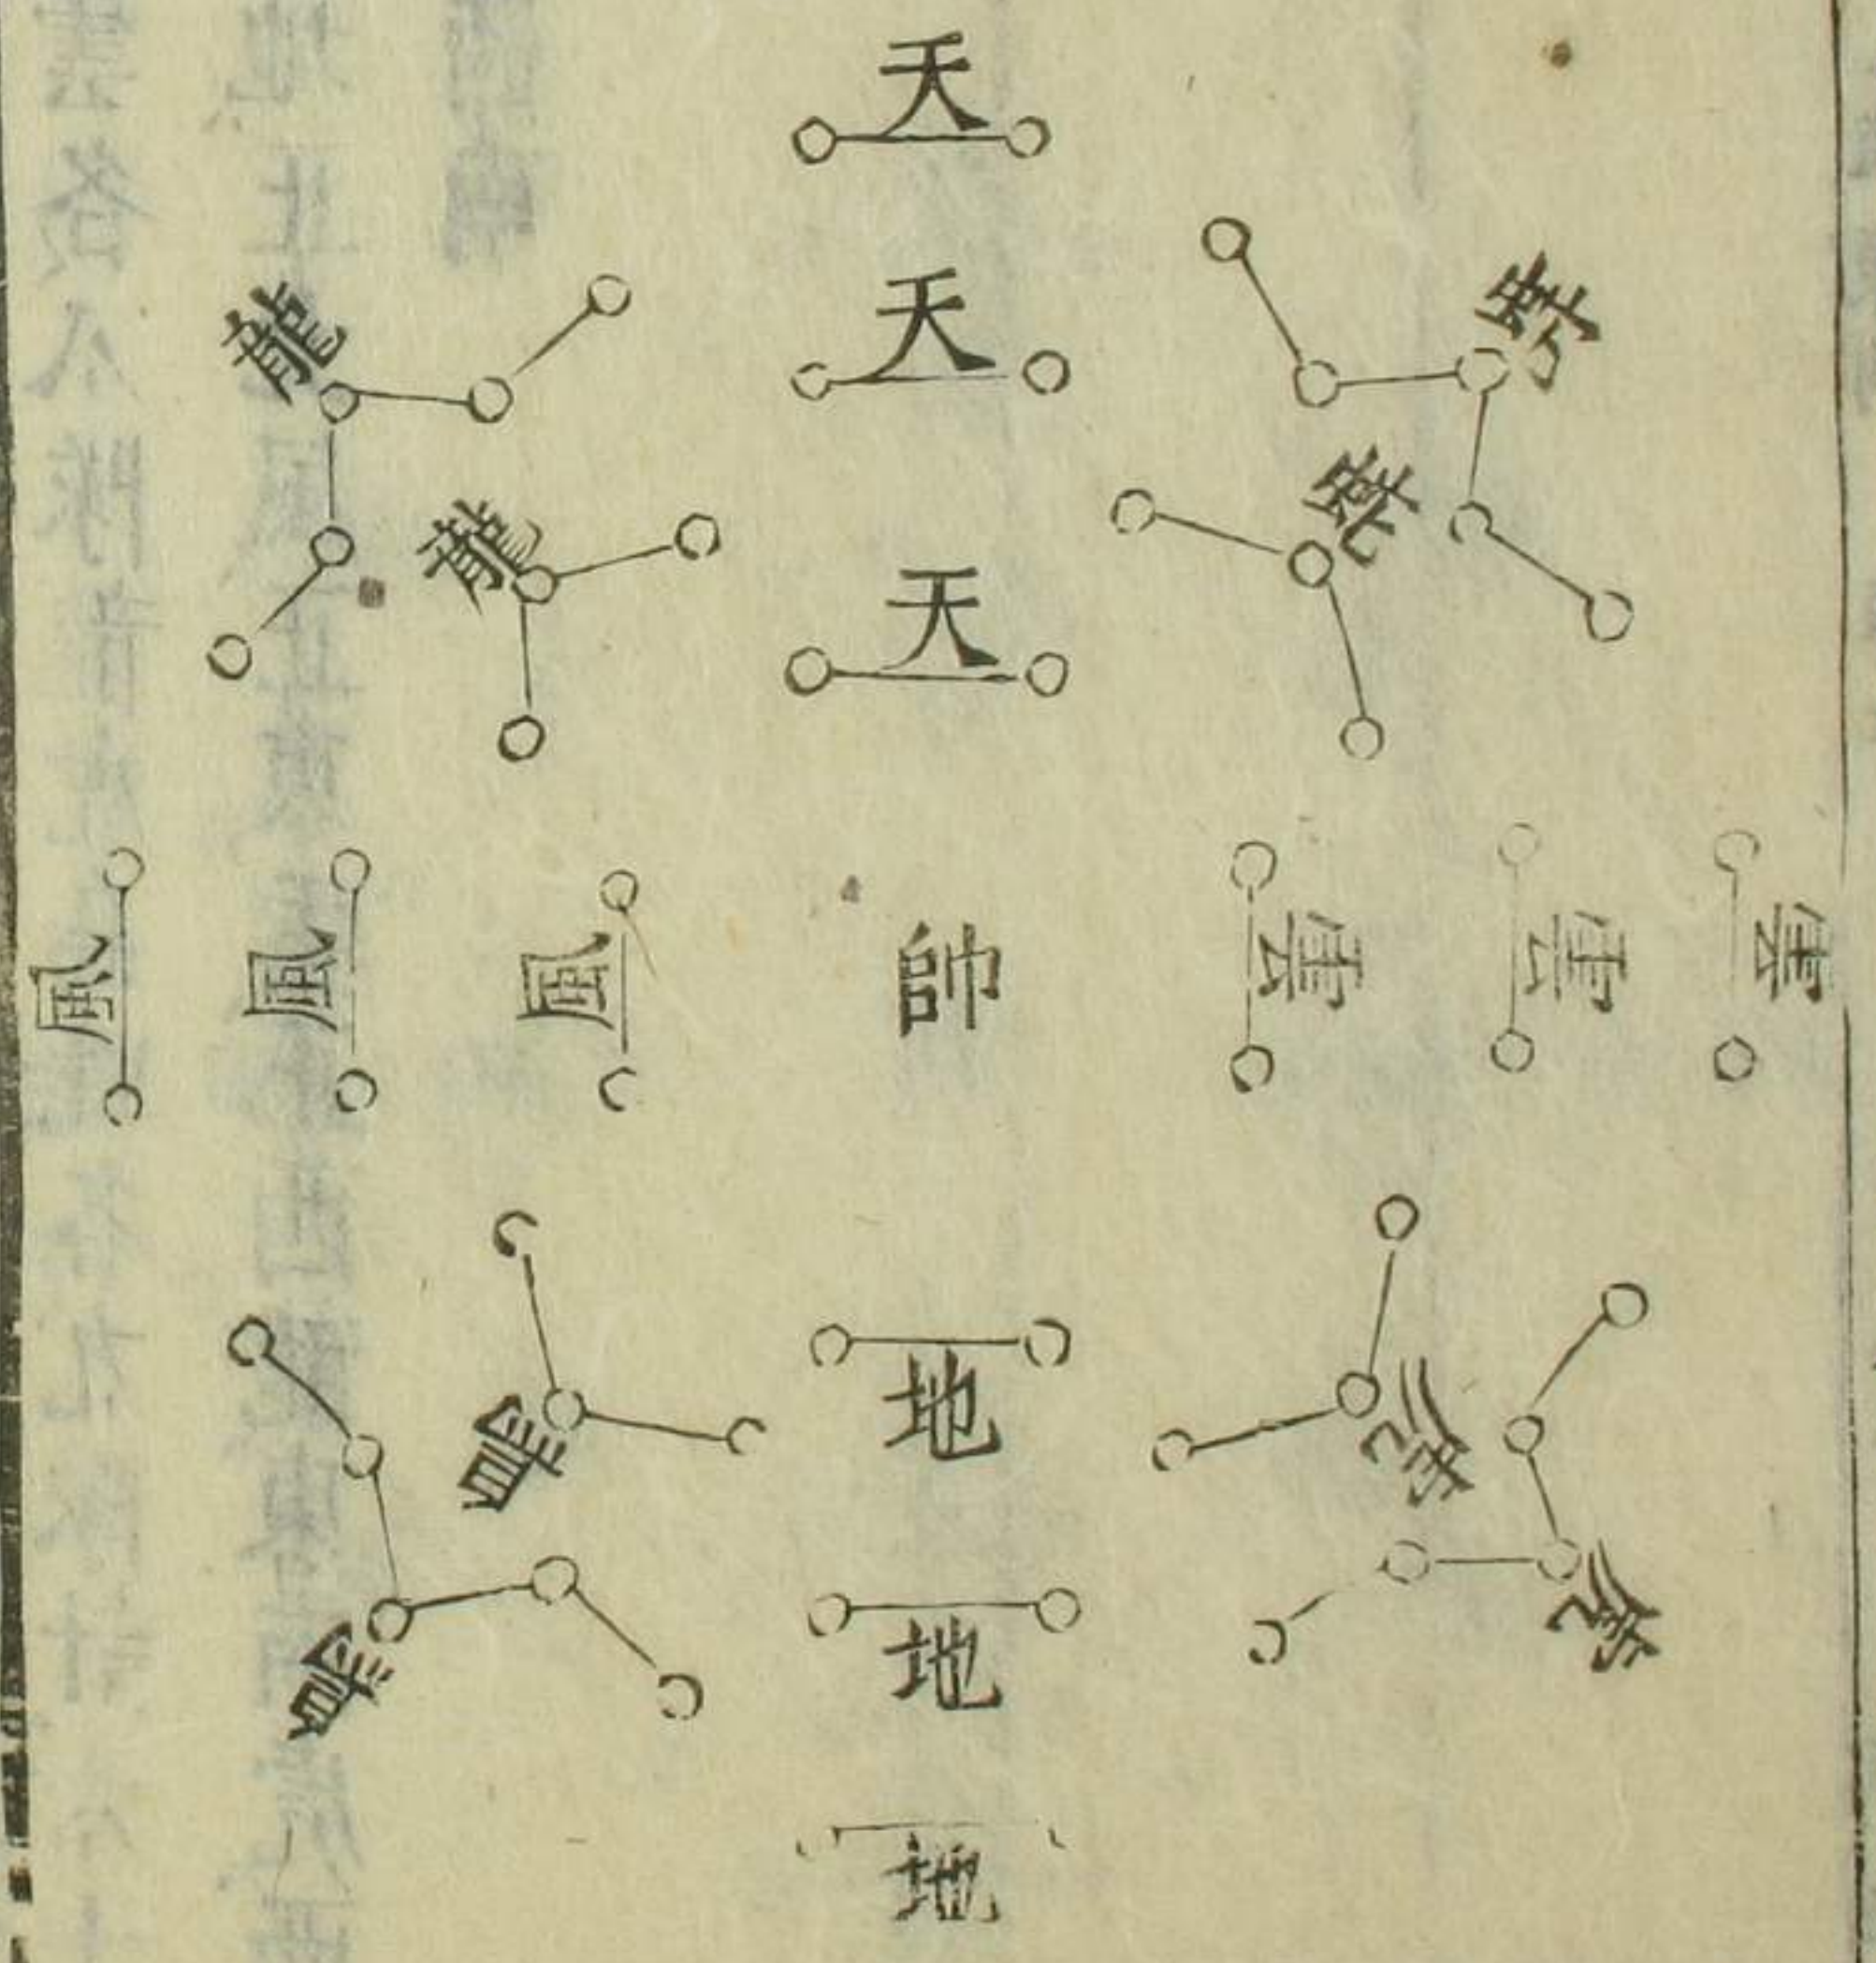 天
天
天
龍
龍
蛇
蛇
風
風
風
帥
雲
雲
雲
鳥
鳥
地
地
地
虎
虎